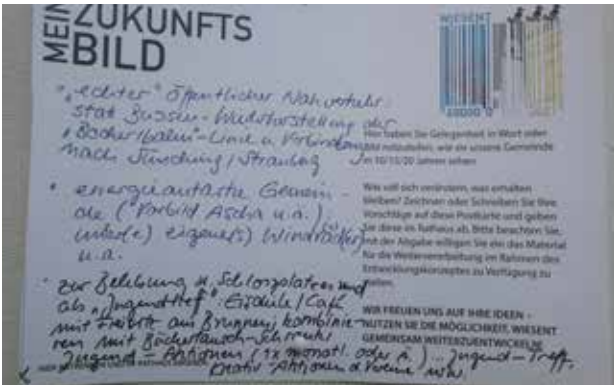 MEIN ZUKUNFTS
BILD
WIESENT
• "echter" öffentlicher Nahverkehr
statt Bussen - Wiederherstellung der
"Bockerlbahn"-Linie u. Verbindung
nach Sünching / Straubing
• energieautarke Gemein-
de (Vorbild Ascha u.ä.)
eigene(s) Windräder
u.a.
• zur Belebung d. Schlossplatzes und
als "Jugendtreff" Eisdiele / Café
mit Freisitz am Brunnen, kombinie-
ren mit Büchertausch-Schrank
Jugend-Aktionen (1x monatl. oder ä.) ... Jugend-Treff,
Kreativ-Aktionen d. Vereine usw.
Hier haben Sie Gelegenheit in Wort oder
Bild mitzuteilen, wie sie unsere Gemeinde
in 10/15/20 Jahren sehen
Was soll sich verändern, was erhalten
bleiben? Zeichnen oder Schreiben Sie Ihre
Vorschläge auf diese Postkarte und geben
Sie diese im Rathaus ab. Bitte beachten Sie,
mit der Abgabe willigen Sie ein das Material
für die Weiterverarbeitung im Rahmen des
Entwicklungskonzeptes zu Verfügung zu
stellen.
WIR FREUEN UNS AUF IHRE IDEEN –
NUTZEN SIE DIE MÖGLICHKEIT, WIESENT
GEMEINSAM WEITERZUENTWICKELN